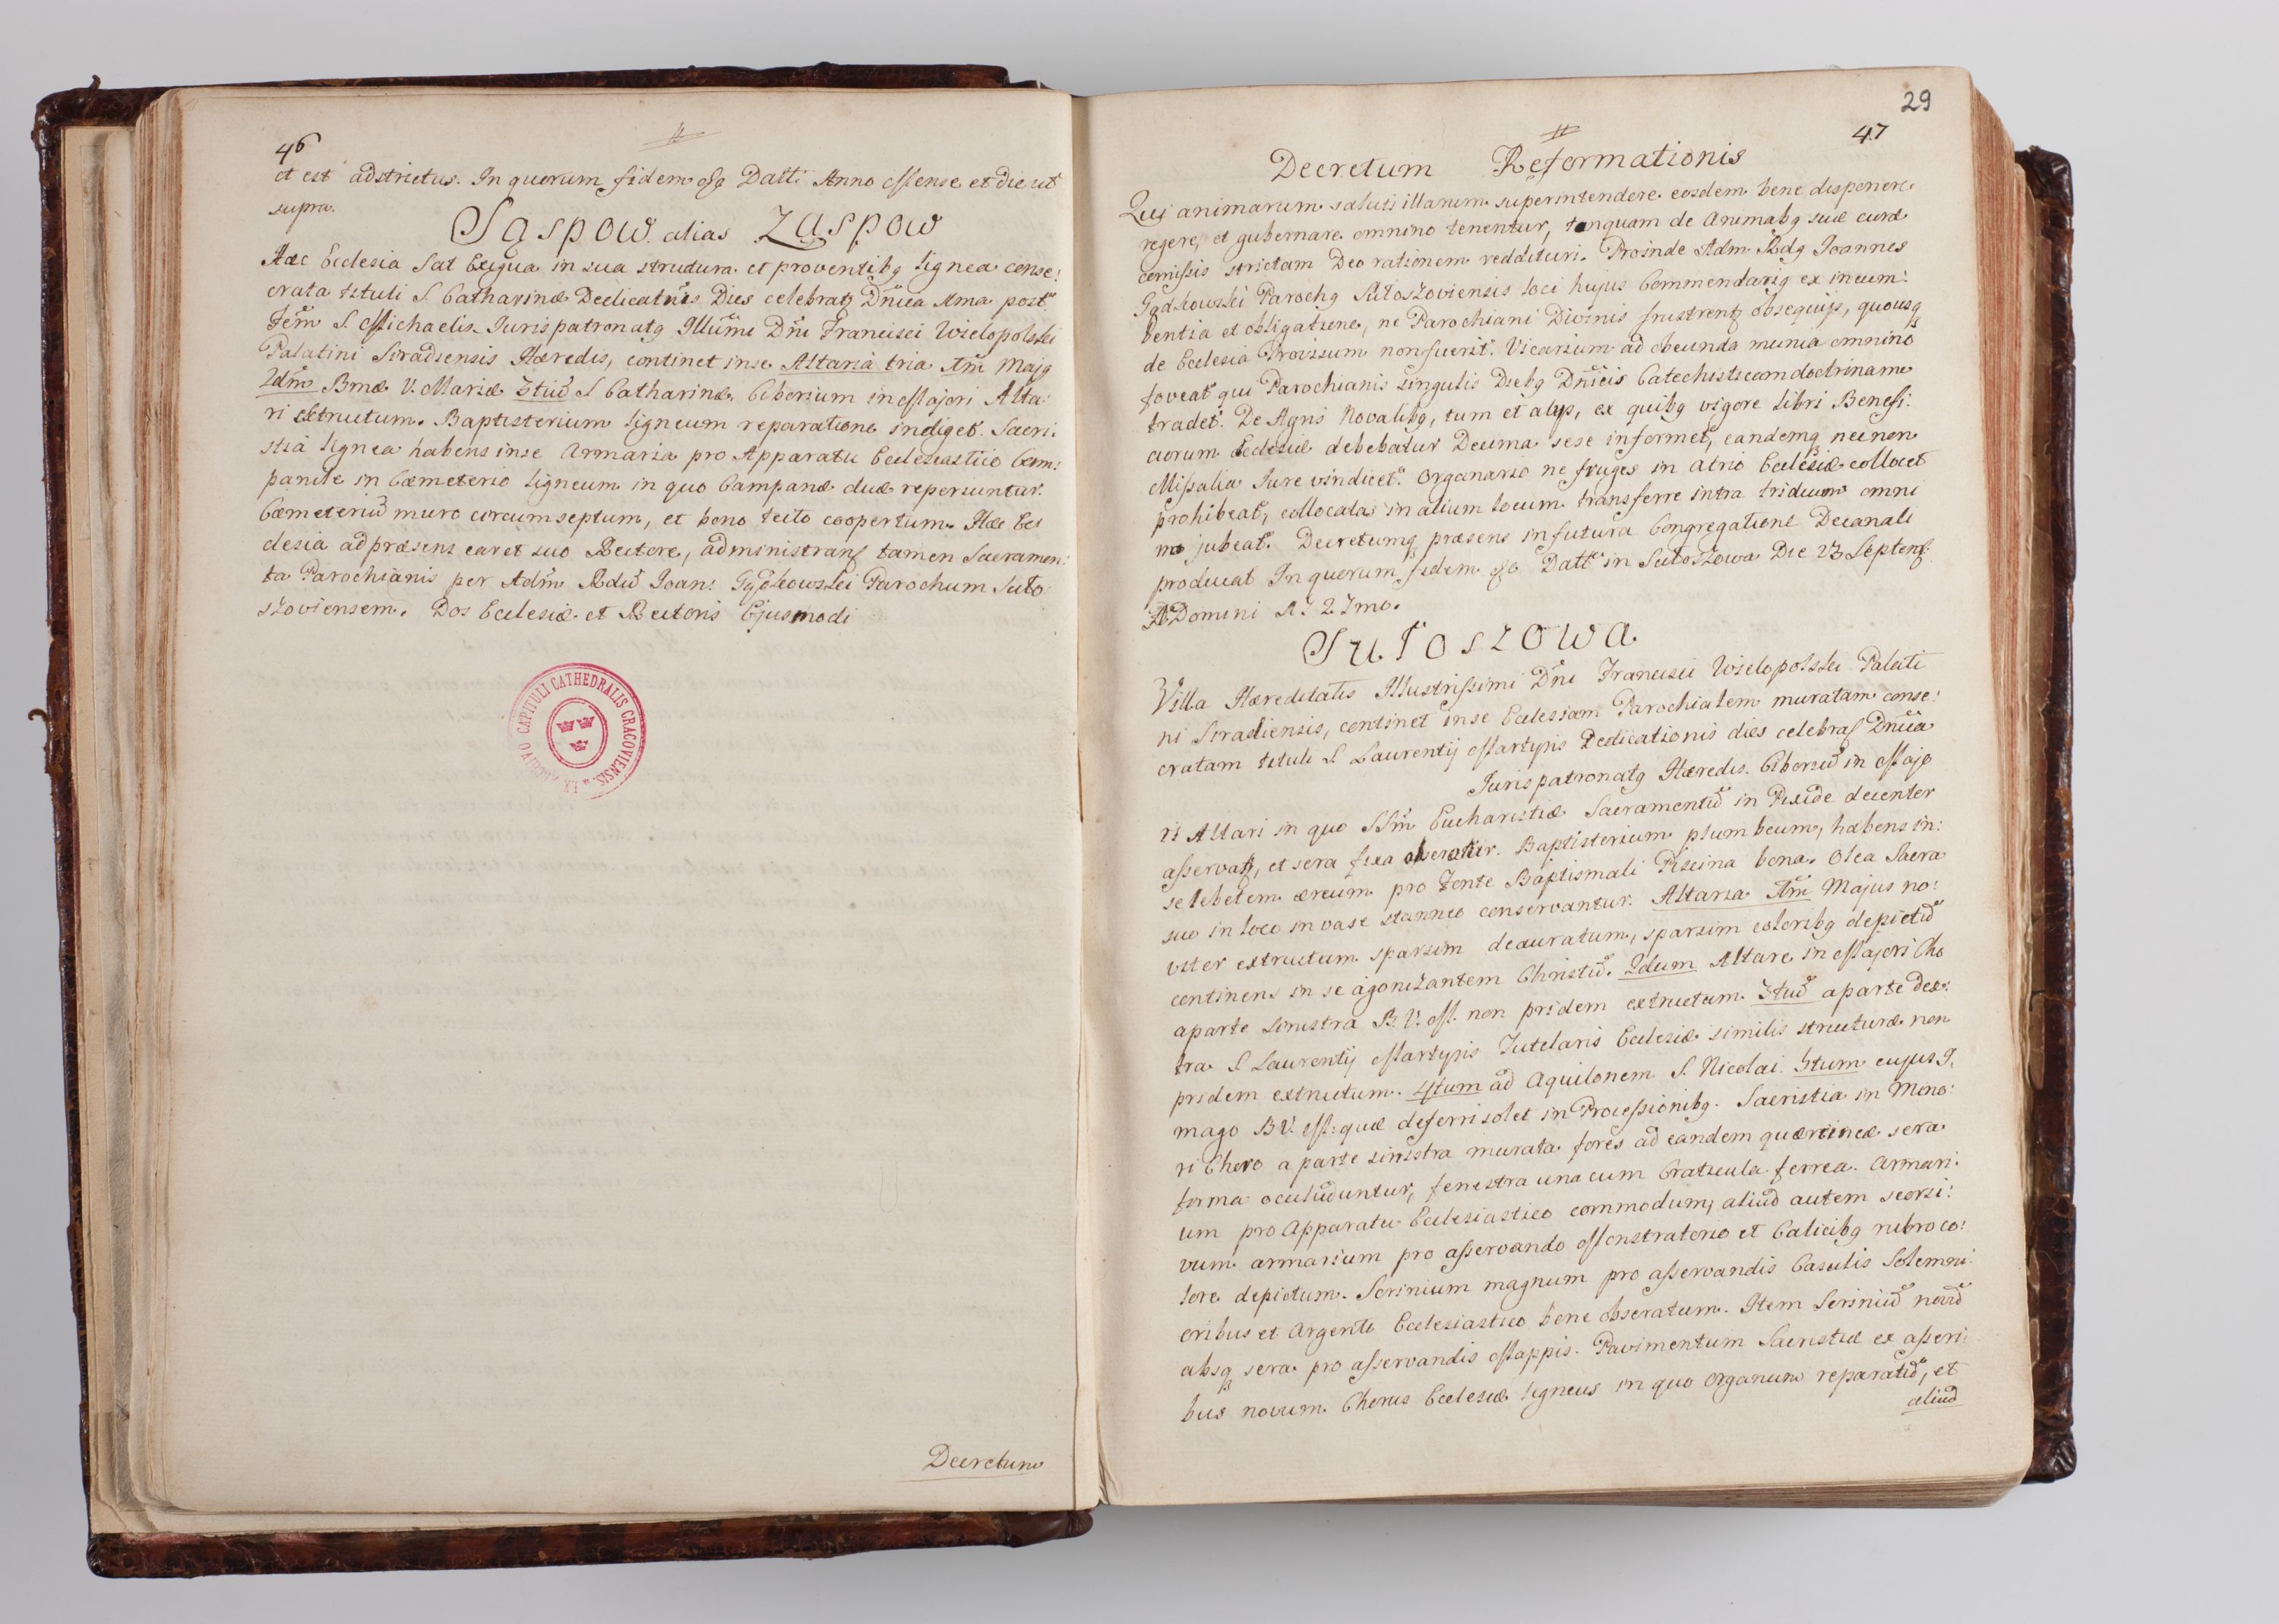 46
et est adstrictus. In quorum fidem Datt: Anno Mense et Die ut
supra.
Saspow alias Zaspow
Hæc Ecclesia Sat Exigua in sua structura et proventibq lignea conse:
crata tituli S. Catharinæ Dedicatnis Dies celebratq Dnica 1ma post
Fem S. Michaelis. Juris patronatq Illumi Dni Francisci Wielopolski
Palatini Siradiensis Hæredis, continet in se Altaria tria 1m Majq
2dm Bmæ V. Mariæ 3tiu S Catharinæ. Ciborium in Majori Alta:
ri Extructum. Baptisterium ligneum reparatione indiget. Sacri:
stia lignea habens in se Armaria pro Apparatu Ecclesiastico Cam:
panile in Cæmeterio ligneum in quo Campanæ duæ reperiuntur.
Cæmeteriu muro circumseptum, et bono tecto coopertum. Hæc Ec
clesia ad præsens caret suo Rectore, administranq tamen Sacramen:
ta Parochianis per Adm Rdu Joan: Parochum Suto
szoviensem. Dos Ecclesiæ et Rectoris Ejusmodi
EX ARCHIVO CAPITULI CATHEDRALIS CRACOVIENSIS
Decretum
29
47
Decretum Reformationis
Qui animarum saluti illarum superintendere easdem bene disponere
regere, et gubernare omnino tenentur, tanquam de Animabq suæ curæ
comissis strictam Deo rationem reddituri. Proinde Adm Rdq Joannes
Parochq Sutoszoviensis loci hujus Commendariq ex incum:
bentia et obligatione, ne Parochiani Divinis frustrentq obsequijs, quousq
de Ecclesia Provisum non fuerit. Vicarium ad obeunda munia omnino
foveat qui Parochianis singulis Diebq Dnicis Catechisticam doctrinam
tradet. De Agris Novalibq, tum et alijs, ex quibq vigore libri Benefi:
ciorum Ecclesiæ debebatur Decima sese informet, eandemq nec non
Missalia Jure vindicet. Organario ne fruges in atrio Ecclesiæ collocet
prohibeat, collocatas in alium locum transferre intra triduum omni
no jubeat. Decretumq præsens in futura Congregatione Decanali
producat In quorum fidem Datt in Sutoszowa Die 23 Septemq
A Domini 1727mo.
Sutoszowa
Villa Hæreditatis Illustrissimi Dni Francisci Wielopolski Palati
ni Siradiensis, continet in se Ecclesiam Parochialem muratam conse:
cratam tituli S. Laurentij Martyris Dedicationis dies celebrat Dnica
Juris patronatq Hæredis. Ciboriu in Majo
ri Altari in quo SSm Eucharistiæ Sacramentu in Pixide decenter
asservatq, et sera fixa obseratur. Baptisterium plumbeum, habens in:
se lebetem æreum pro Fonte Baptismali Piscina bona. Olea Sacra
suo in loco in vase stanneo conservantur. Altaria 1m Majus no:
viter extructum sparsim deauratum, sparsim coloribq depictu
continens in se agonizantem Christu. 2dum Altare in Majori Cho
a parte sinistra B. V. M. non pridem extructum. 3tiu a parte dex:
tra S. Laurentij Martyris Tutelaris Ecclesiæ similis structuræ non
pridem extructum. 4tum ad Aquilonem S. Nicolai. 5tum cujus I:
mago B V. M: quæ deferri solet in Processionibq. Sacristia in Mino:
ri Choro a parte sinistra murata fores ad eandem quærcineæ sera
firma occluduntur, fenestra una cum Craticula ferrea. Armari:
um pro Apparatu Ecclesiastico commodum, aliud autem seorsi:
vum armarium pro asservando Monstratorio et Calicibq rubro co:
lore depictum. Scrinium magnum pro asservandis Casulis Solemni:
oribus et Argento Ecclesiastico bene obseratum. Item Scriniu novu
absq sera pro asservandis Mappis. Pavimentum Sacristiæ ex asseri:
bus novum. Chorus Ecclesiæ ligneus in quo Organum reparatu, et
aliud